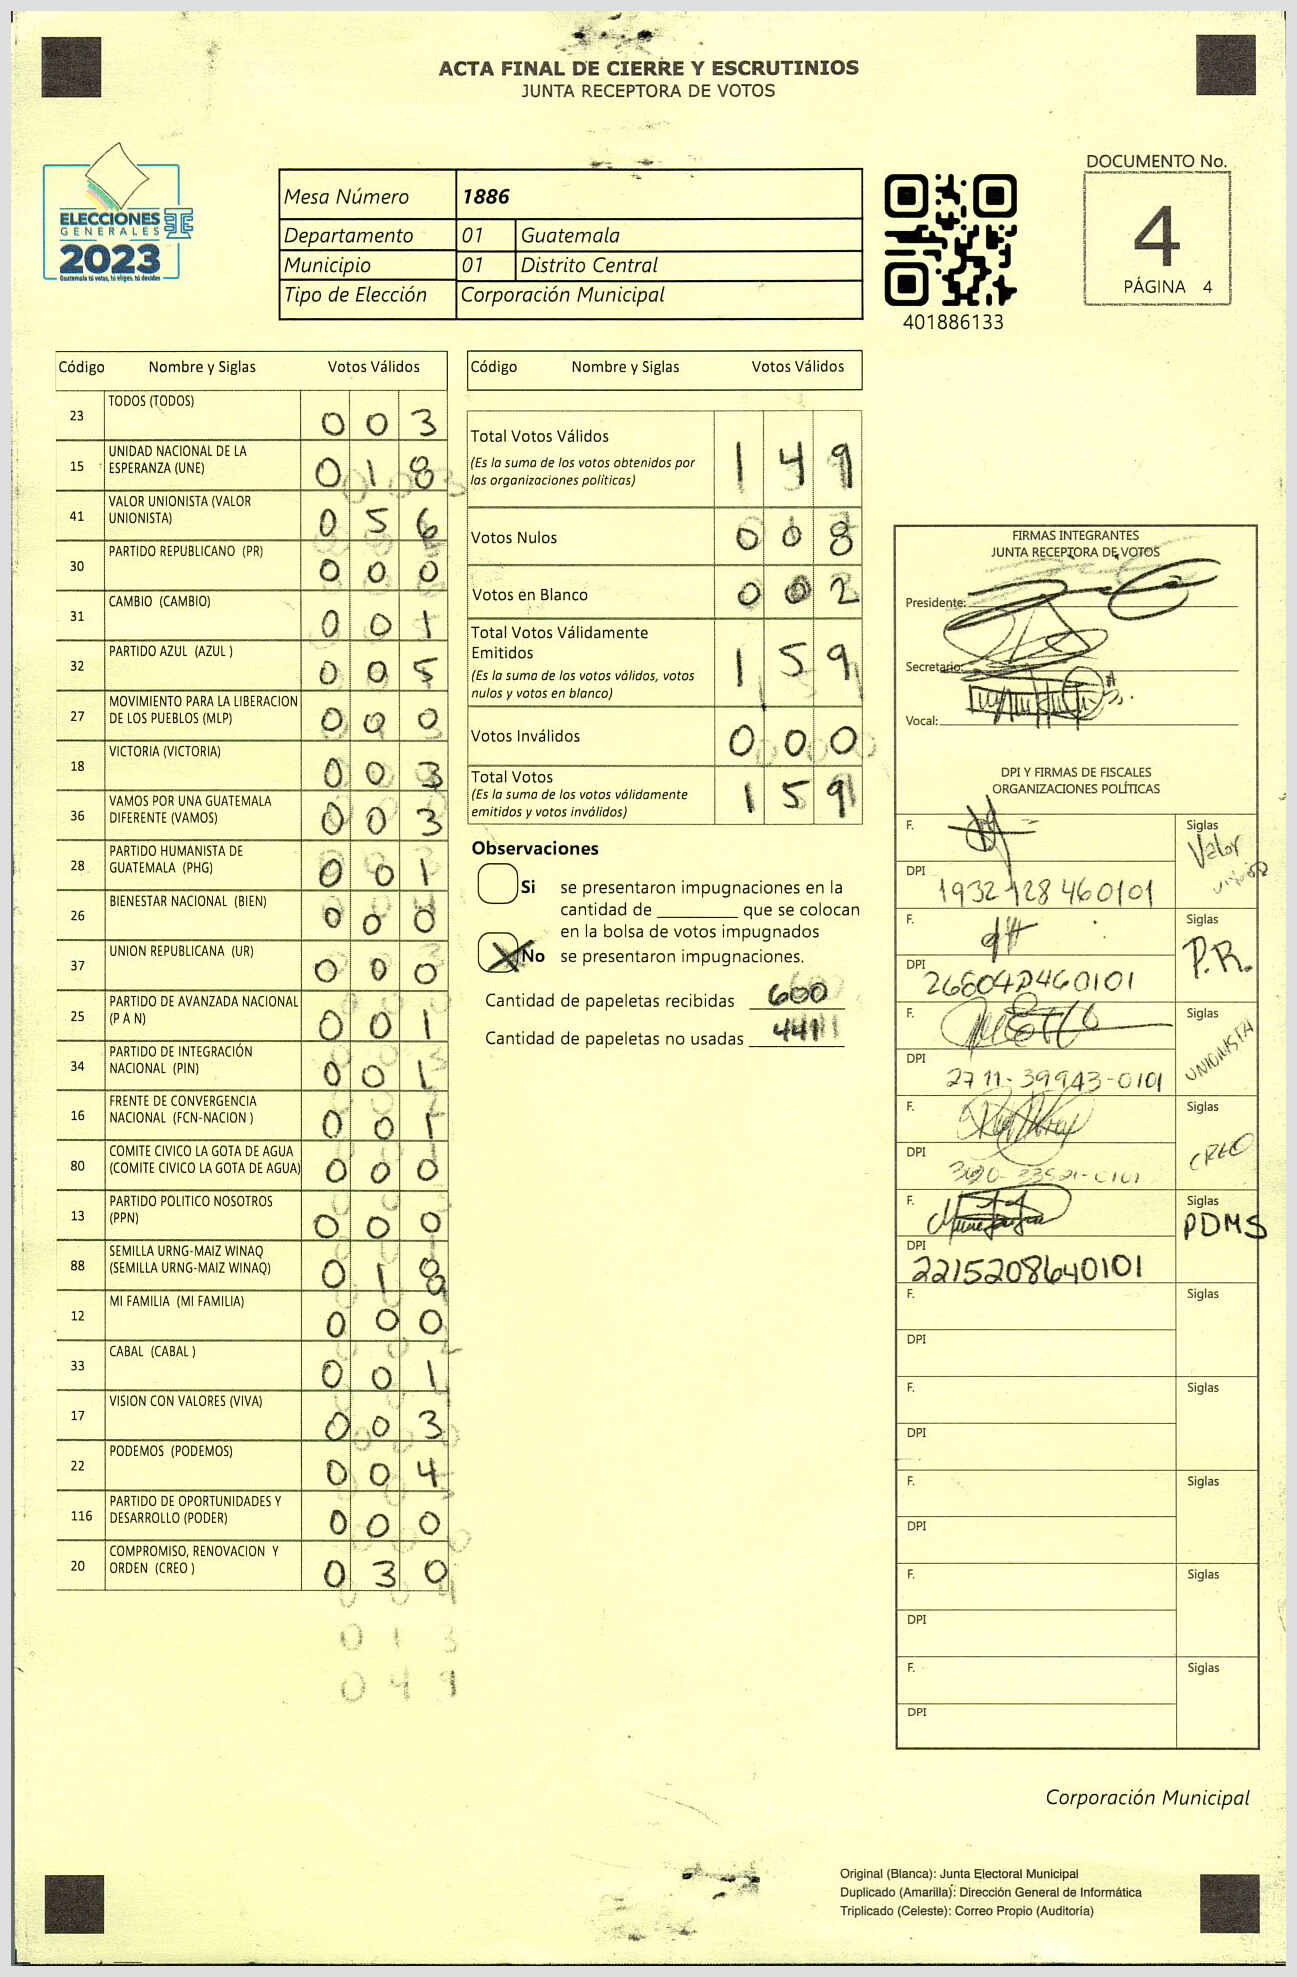 ACTA FINAL DE CIERRE Y ESCRUTINIOS
JUNTA RECEPTORA DE VOTOS
ELECCIONES
GENERALES
2023
Guatemala tú votas, tú eliges, tú decides
Mesa Número 1886
Departamento 01 Guatemala
Municipio 01 Distrito Central
Tipo de Elección Corporación Municipal
401886133
DOCUMENTO No.
4
PÁGINA 4
Código Nombre y Siglas Votos Válidos
23 TODOS (TODOS) 0 0 3
15 UNIDAD NACIONAL DE LA
ESPERANZA (UNE) 0 1 8
41 VALOR UNIONISTA (VALOR
UNIONISTA) 0 5 6
30 PARTIDO REPUBLICANO (PR) 0 0 0
31 CAMBIO (CAMBIO) 0 0 1
32 PARTIDO AZUL (AZUL ) 0 0 5
27 MOVIMIENTO PARA LA LIBERACION
DE LOS PUEBLOS (MLP) 0 0 0
18 VICTORIA (VICTORIA) 0 0 3
36 VAMOS POR UNA GUATEMALA
DIFERENTE (VAMOS) 0 0 3
28 PARTIDO HUMANISTA DE
GUATEMALA (PHG) 0 0 1
26 BIENESTAR NACIONAL (BIEN) 0 0 0
37 UNION REPUBLICANA (UR) 0 0 0
25 PARTIDO DE AVANZADA NACIONAL
(P A N) 0 0 1
34 PARTIDO DE INTEGRACIÓN
NACIONAL (PIN) 0 0 1
16 FRENTE DE CONVERGENCIA
NACIONAL (FCN-NACION ) 0 0 1
80 COMITE CIVICO LA GOTA DE AGUA
(COMITE CIVICO LA GOTA DE AGUA) 0 0 0
13 PARTIDO POLITICO NOSOTROS
(PPN) 0 0 0
88 SEMILLA URNG-MAIZ WINAQ
(SEMILLA URNG-MAIZ WINAQ) 0 1 8
12 MI FAMILIA (MI FAMILIA) 0 0 0
33 CABAL (CABAL ) 0 0 1
17 VISION CON VALORES (VIVA) 0 0 3
22 PODEMOS (PODEMOS) 0 0 4
116 PARTIDO DE OPORTUNIDADES Y
DESARROLLO (PODER) 0 0 0
20 COMPROMISO, RENOVACION Y
ORDEN (CREO ) 0 3 0
Código Nombre y Siglas Votos Válidos
Total Votos Válidos 1 4 9
(Es la suma de los votos obtenidos por
las organizaciones políticas)
Votos Nulos 0 0 8
Votos en Blanco 0 0 2
Total Votos Válidamente
Emitidos 1 5 9
(Es la suma de los votos válidos, votos
nulos y votos en blanco)
Votos Inválidos 0 0 0
Total Votos 1 5 9
(Es la suma de los votos válidamente
emitidos y votos inválidos)
Observaciones
Si se presentaron impugnaciones en la
cantidad de ________ que se colocan
en la bolsa de votos impugnados
X No se presentaron impugnaciones.
Cantidad de papeletas recibidas 600
Cantidad de papeletas no usadas 441
FIRMAS INTEGRANTES
JUNTA RECEPTORA DE VOTOS
Presidente:
Secretario:
Vocal:
DPI Y FIRMAS DE FISCALES
ORGANIZACIONES POLÍTICAS
F. Siglas
Valor
DPI
F. Siglas
P.R.
DPI
F. Siglas
UNIONISTA
DPI 2711-39943-0101
F. Siglas
CREO
DPI
F. Siglas
PDMS
DPI 2215208640101
F. Siglas
DPI
F. Siglas
DPI
F. Siglas
DPI
F. Siglas
DPI
F. Siglas
DPI
Corporación Municipal
Original (Blanca): Junta Electoral Municipal
Duplicado (Amarilla): Dirección General de Informática
Triplicado (Celeste): Correo Propio (Auditoría)